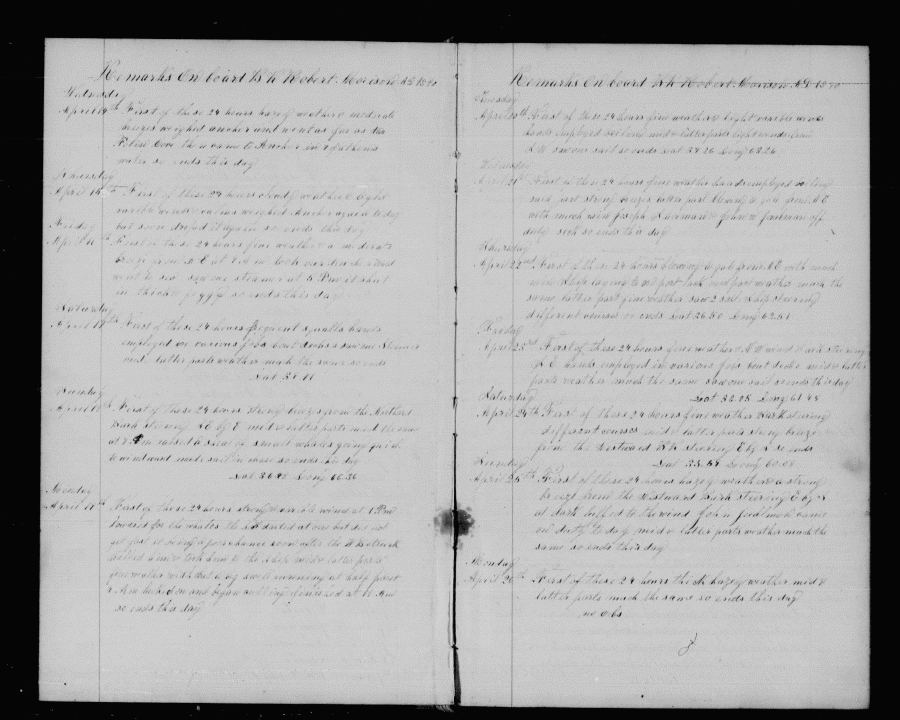 Remarks On board Bk Robert Morison AD 1880
Wednesday
April 14th First of these 24 hours hazy weather & moderate
breezes weighed anchor and went as far as the
Cove then came to Anchor in 7 fathoms
water so ends this day
Thursday
April 15th First of these 24 hours cloudy weather & light
varible winds weighed Anchor again to day
but soon droped it again so ends this day
Friday
April 16th First of these 24 hours fine weather & a moderate
breeze from N.E. at took our Anchor and
went to sea saw one steamer at 5 Pm it shut
in thick foggy so ends this day
Saturday
April 17th First of these 24 hours frequent squalls hands
employed in various jobs bout decks saw one Steamer
mid & latter parts weather much the same so ends
Lat
Sunday
April 18th First of these 24 hours strong breeze from the
Bark steering E by S mid & latter parts much the same
at raised a shoal of small whales going quick
to windward made sail in chase so ends the day
Lat Long 66.36
Monday
April 19th First of these 24 hours strong & varible winds at 1 Pm
lowered for the whales the darted at one but did not
get fast it being a poor chance soon after the struck
killed & took him to the ship mid & latter parts
fine weather with swell at half past
Am hooked on and began cutting finished at 11 Am
so ends this day
Remarks On board Bk Robert Morison AD 1880
Tuesday
April 20th First of these 24 hours fine weather & light varible winds
hands employed mid & latter parts light winds from
S.W. saw one sail so ends Lat 37.26 Long 63.26
Wednesday
April 21st First of these 24 hours fine weather hands employed
mid part strong breezes latter part blowing a gale from N.E.
with much rain Joseph & John off
duty sick so ends this day
Thursday
April 22nd First of these 24 hours blowing a gale from N.E. with much
rain Ship laying to mid part weather much the
same latter part fine weather saw 2 sail Ship steering
different courses so ends Lat 36.50 Long 62.51
Friday
April 23rd First of these 24 hours fine weather N.W. wind Bark steering
S.E. hands employed in various jobs bout decks mid & latter
parts weather much the same saw one sail so ends this day
Lat 36.08 Long 61.48
Saturday
April 24th First of these 24 hours fine weather Bark steering
different courses mid & latter parts strong breezes
from the Westward Bk steering E by S so ends
Lat 35.44 Long 60.08
Sunday
April 25th First of these 24 hours hazy weather & a strong
breeze from the Westward Bark steering E by S
at dark luffed to the wind John came
on duty to day mid & latter parts weather much the
same so ends this day
Monday
April 26th First of these 24 hours thick hazy weather mid &
latter parts much the same so ends this day
no obs